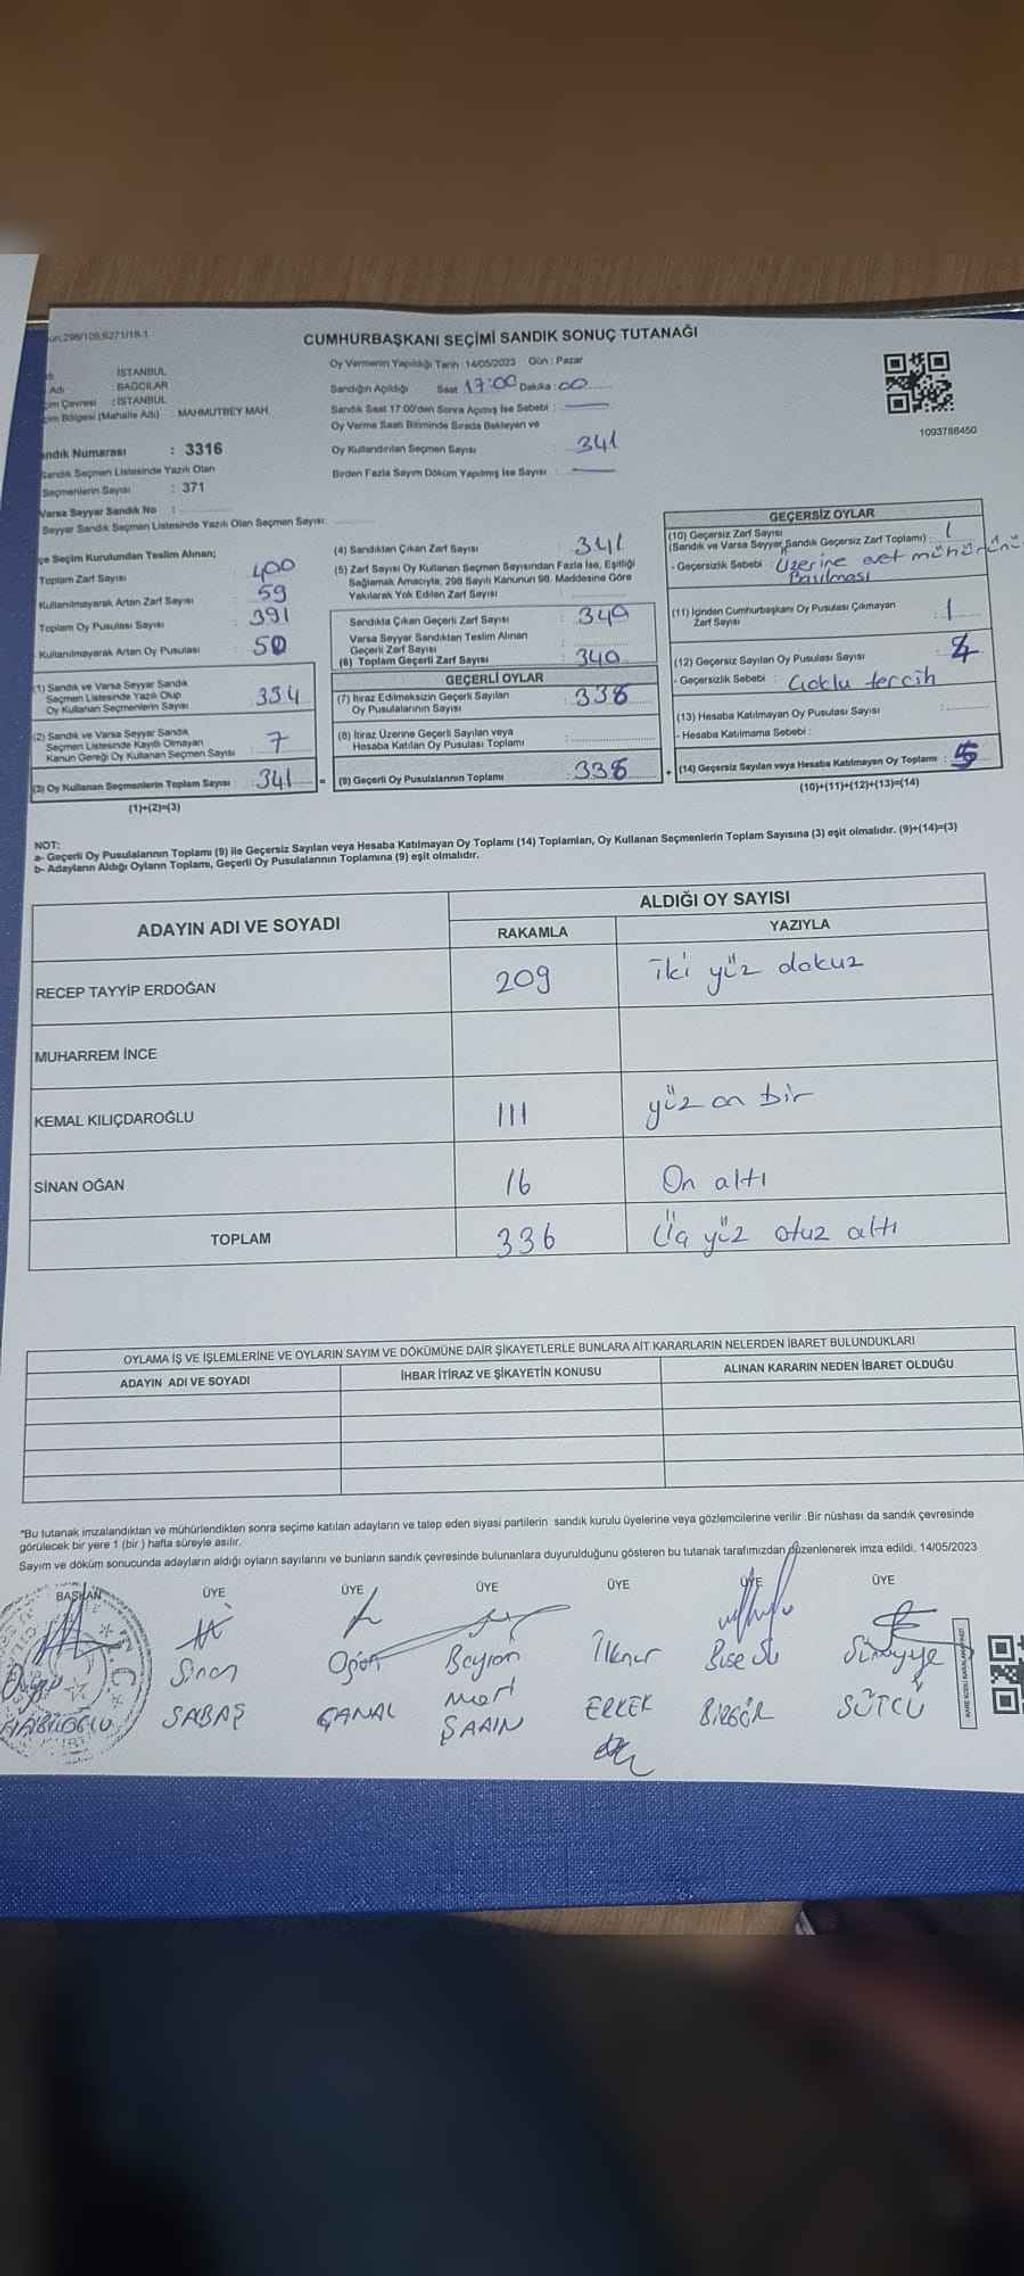 CUMHURBAŞKANI SEÇİMİ SANDIK SONUÇ TUTANAĞI
Oy Vermenin Yapıldığı Tarih : 14/05/2023 Gün : Pazar
İSTANBUL
Adı : BAĞCILAR
Çevresi : İSTANBUL
Bölgesi (Mahalle Adı) : MAHMUTBEY MAH.
Sandığın Açıldığı Saat 17:00 Dakika : 00
Sandık Saat 17:00'den Sonra Açılmış İse Sebebi :
Oy Verme Saati Bitiminde Sırada Bekleyen ve
Oy Kullandırılan Seçmen Sayısı 341
Birden Fazla Sayım Döküm Yapılmış İse Sayısı :
1093788450
Sandık Numarası : 3316
Sandık Seçmen Listesinde Yazılı Olan
Seçmenlerin Sayısı : 371
Varsa Seyyar Sandık No :
Seyyar Sandık Seçmen Listesinde Yazılı Olan Seçmen Sayısı:
İlçe Seçim Kurulundan Teslim Alınan;
Toplam Zarf Sayısı : 400
Kullanılmayarak Artan Zarf Sayısı : 59
Toplam Oy Pusulası Sayısı : 391
Kullanılmayarak Artan Oy Pusulası : 50
(1) Sandık ve Varsa Seyyar Sandık
Seçmen Listesinde Yazılı Olup
Oy Kullanan Seçmenlerin Sayısı : 334
(2) Sandık ve Varsa Seyyar Sandık
Seçmen Listesinde Kayıtlı Olmayan
Kanun Gereği Oy Kullanan Seçmen Sayısı : 7
(3) Oy Kullanan Seçmenlerin Toplam Sayısı : 341
(1)+(2)=(3)
(4) Sandıktan Çıkan Zarf Sayısı : 341
(5) Zarf Sayısı Oy Kullanan Seçmen Sayısından Fazla İse, Eşitliği
Sağlamak Amacıyla, 298 Sayılı Kanunun 98. Maddesine Göre
Yakılarak Yok Edilen Zarf Sayısı
Sandıkta Çıkan Geçerli Zarf Sayısı : 340
Varsa Seyyar Sandıktan Teslim Alınan
Geçerli Zarf Sayısı :
(6) Toplam Geçerli Zarf Sayısı : 340
GEÇERLİ OYLAR
(7) İtiraz Edilmeksizin Geçerli Sayılan
Oy Pusulalarının Sayısı : 336
(8) İtiraz Üzerine Geçerli Sayılan veya
Hesaba Katılan Oy Pusulası Toplamı :
(9) Geçerli Oy Pusulalarının Toplamı : 336
GEÇERSİZ OYLAR
(10) Geçersiz Zarf Sayısı
(Sandık ve Varsa Seyyar Sandık Geçersiz Zarf Toplamı) : 1
- Geçersizlik Sebebi : Üzerine evet mührünün
Basılması
(11) İçinden Cumhurbaşkanı Oy Pusulası Çıkmayan
Zarf Sayısı : 1
(12) Geçersiz Sayılan Oy Pusulası Sayısı :
- Geçersizlik Sebebi : Çoklu tercih
(13) Hesaba Katılmayan Oy Pusulası Sayısı :
- Hesaba Katılmama Sebebi :
+ (14) Geçersiz Sayılan veya Hesaba Katılmayan Oy Toplamı : 5
(10)+(11)+(12)+(13)=(14)
NOT:
a- Geçerli Oy Pusulalarının Toplamı (9) ile Geçersiz Sayılan veya Hesaba Katılmayan Oy Toplamı (14) Toplamları, Oy Kullanan Seçmenlerin Toplam Sayısına (3) eşit olmalıdır. (9)+(14)=(3)
b- Adayların Aldığı Oyların Toplamı, Geçerli Oy Pusulalarının Toplamına (9) eşit olmalıdır.
ADAYIN ADI VE SOYADI
ALDIĞI OY SAYISI
RAKAMLA YAZIYLA
RECEP TAYYİP ERDOĞAN 209 iki yüz dokuz
MUHARREM İNCE
KEMAL KILIÇDAROĞLU 111 yüz on bir
SİNAN OĞAN 16 On altı
TOPLAM 336 Üç yüz otuz altı
OYLAMA İŞ VE İŞLEMLERİNE VE OYLARIN SAYIM VE DÖKÜMÜNE DAİR ŞİKAYETLERLE BUNLARA AİT KARARLARIN NELERDEN İBARET BULUNDUKLARI
ADAYIN ADI VE SOYADI İHBAR İTİRAZ VE ŞİKAYETİN KONUSU ALINAN KARARIN NEDEN İBARET OLDUĞU
*Bu tutanak imzalandıktan ve mühürlendikten sonra seçime katılan adayların ve talep eden siyasi partilerin sandık kurulu üyelerine veya gözlemcilerine verilir. Bir nüshası da sandık çevresinde
görülecek bir yere 1 (bir) hafta süreyle asılır.
Sayım ve döküm sonucunda adayların aldığı oyların sayılarını ve bunların sandık çevresinde bulunanlara duyurulduğunu gösteren bu tutanak tarafımızdan düzenlenerek imza edildi. 14/05/2023
BAŞKAN ÜYE ÜYE ÜYE ÜYE ÜYE ÜYE
Sinan Bayram İlknur
Mert
SABAŞ ÇANAL ŞAHİN ERKEK BİRGÖR SÜTCÜ